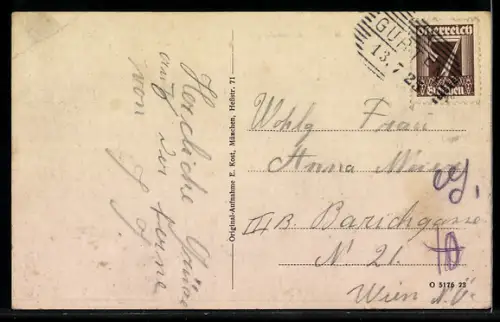 Herzliche Grüße
aus der Ferne
von
Original-Aufnahme E. Kost, München, Heßstr. 71
Österreich
7
Groschen
GUR
13.7.2
Wohlg Frau
Anna
III B Barichgasse
N 21.
Wien
O 5175 23